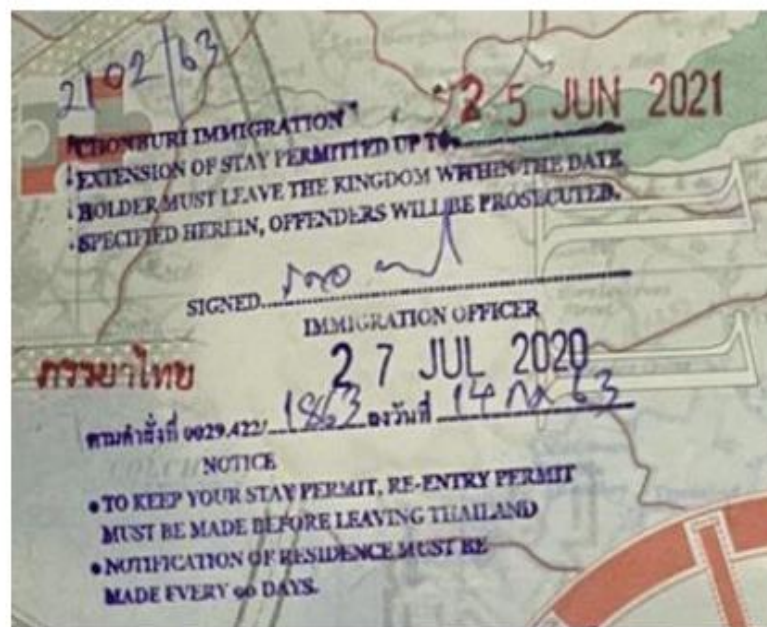 2102/63
"CHONBURI IMMIGRATION" 25 JUN 2021
EXTENSION OF STAY PERMITTED UP TO
HOLDER MUST LEAVE THE KINGDOM WITHIN THE DATE
SPECIFIED HEREIN, OFFENDERS WILL BE PROSECUTED.
SIGNED
IMMIGRATION OFFICER
ภรรยาไทย
27 JUL 2020
ตามคำสั่งที่ 0029.422/ 1863 ลงวันที่ 14 กค 63
NOTICE
• TO KEEP YOUR STAY PERMIT, RE-ENTRY PERMIT
MUST BE MADE BEFORE LEAVING THAILAND
• NOTIFICATION OF RESIDENCE MUST BE
MADE EVERY 90 DAYS.